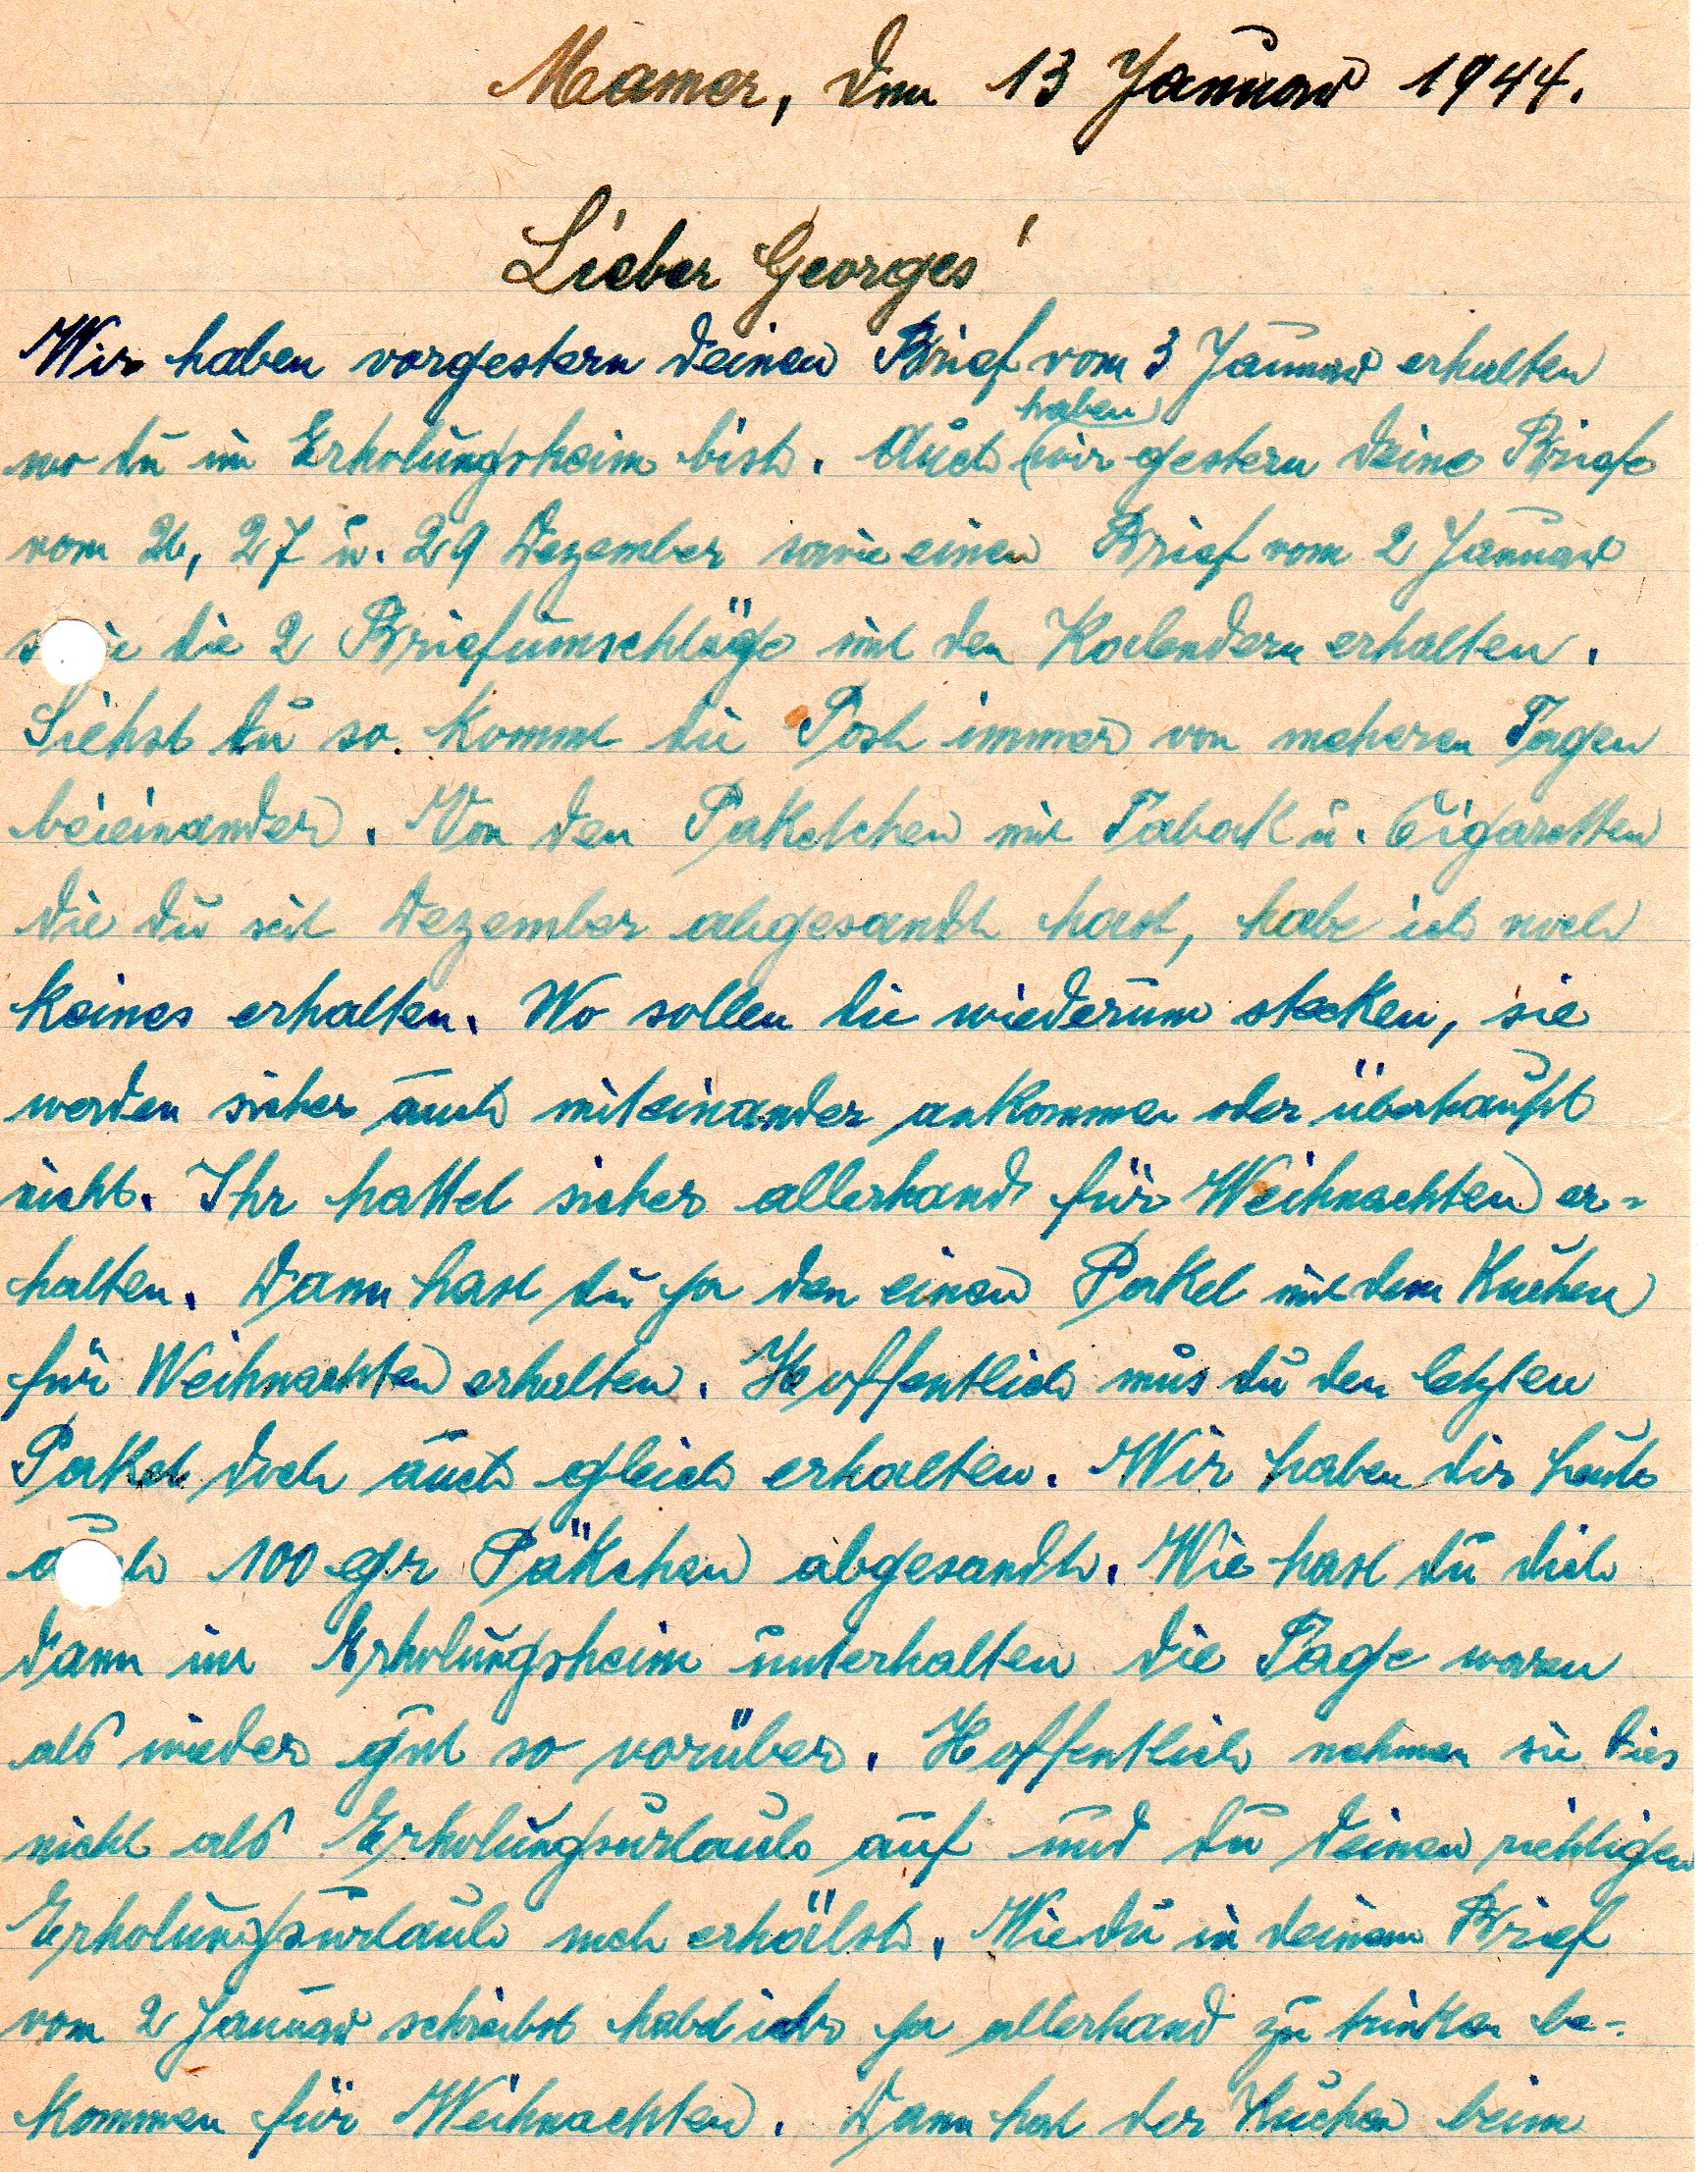 Mamer, den 13 Januar 1944.
Lieber Georges!
Wir haben vorgestern deinen Brief vom 3 Januar erhalten
haben
wo du im Erholungsheim bist. Auch (wir gestern deine Briefe
vom 26, 27 u. 29 Dezember sowie einen Brief vom 2 Januar
die 2 Briefumschläge mit den Kalendern erhalten.
Siehst du so kommt die Post immer von meheren Tagen
beieinander. Von den Paketchen mit Tabak u. Cigaretten
die du seit Dezember abgesandt hast, habe ich noch
keines erhalten. Wo sollen die wiederum stecken, sie
werden sicher auch miteinander ankommen oder überhaupt
nicht. Ihr hattet sicher allerhand für Weihnachten er-
halten. Dann hast du ja den einen Paket mit dem Kuchen
für Weihnachten erhalten. Hoffentlich mus du den letzten
Paket doch auch gleich erhalten. Wir haben dir heute
100 gr Päkchen abgesandt. Wie hast du dich
dann im Erholungsheim unterhalten die Tage waren
als wieder gut so vorüber. Hoffentlich nehmen sie dies
nicht als Erholungsurlaub auf und du deinen richtigen
Erholungsurlaub noch erhälst. Wie du in deinem Brief
vom 2 Januar schreibst habt ihr ja allerhand zu trinken be-
kommen für Weihnachten. Dann hat der Kuchen beim